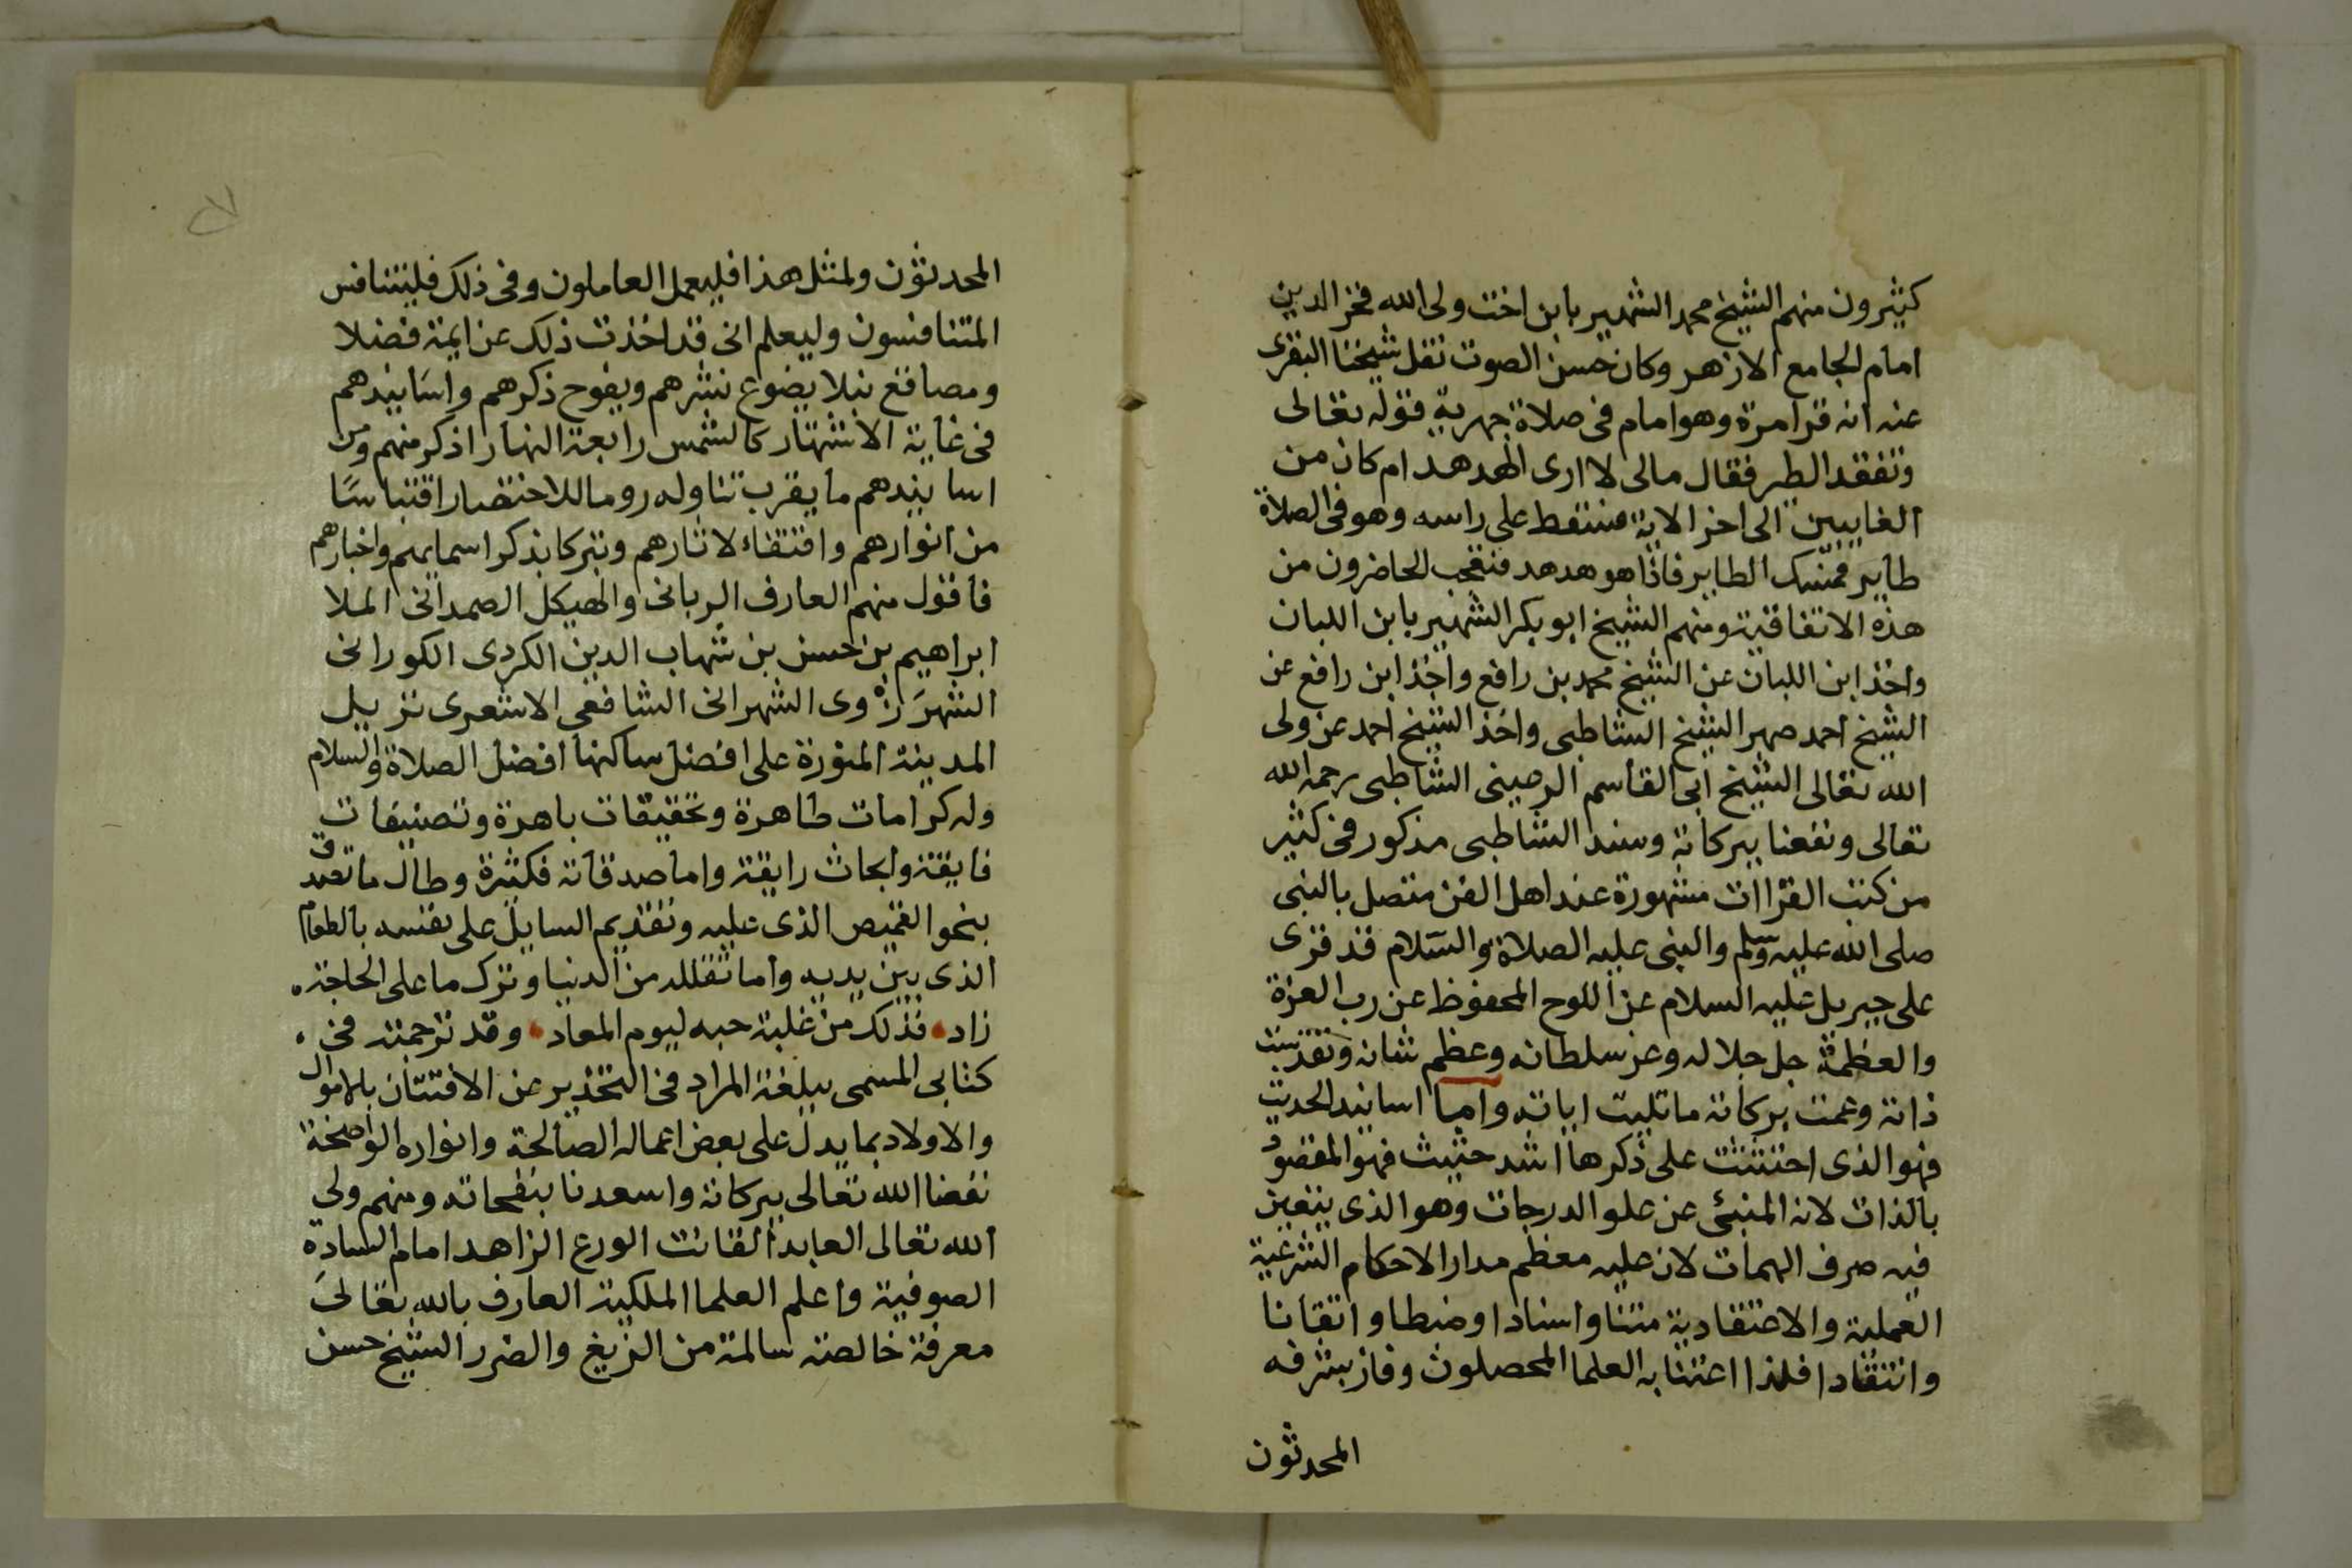 كثيرون منهم الشيخ محمد الشهير بابن اخت ولى الله فخر الدين
امام الجامع الازهر وكان حسن الصوت نقل شيخنا البقرى
عنه انه قرا مرة وهو امام فى صلاة جهرية قوله تعالى
وتفقد الطير فقال مالى لا ارى الهدهد ام كان من
الغايبين الى اخر الاية فسقط على راسه وهو فى الصلاة
طاير فمسك الطاير فاذا هو هدهد فتعجب الحاضرون من
هذه الاتفاقية ومنهم الشيخ ابو بكر الشهير بابن اللبان
واخذ ابن اللبان عن الشيخ محمد بن رافع واخذ ابن رافع عن
الشيخ احمد صهر الشيخ الشاطبى واخذ الشيخ احمد عن ولى
الله تعالى الشيخ ابى القاسم الرعينى الشاطبى رحمه الله
تعالى ونفعنا ببركاته وسند الشاطبى مذكور فى كثير
من كتب القراات مشهورة عند اهل الفن متصل بالنبى
صلى الله عليه وسلم والنبى عليه الصلاة والسلام قد قرى
على جبريل عليه السلام عن اللوح المحفوظ عن رب العزة
والعظمة جل جلاله وعز سلطانه وعظم شانه وتقدست
ذاته وعمت بركاته ما تليت اياته واما اسانيد الحديث
فهو الذى احتثثت على ذكرها اشد حثيث فهو المقصود
بالذات لانه المنبئ عن علو الدرجات وهو الذى يتعين
فيه صرف الهمات لان عليه معظم مدار الاحكام الشرعية
العملية والاعتقادية متنا واسنادا وضبطا واتقانا
وانتقادا فلهذا اعتنا به العلما المحصلون وفاز بشرفه
المحدثون
المحدثون ولمثل هذا فليعمل العاملون وفى ذلك فليتنافس
المتنافسون وليعلم انى قد اخذت ذلك عن ايمة فضلا
ومصاقع نبلا يضوع نشرهم ويفوح ذكرهم واسانيدهم
فى غاية الاشتهار كالشمس رابعة النهار اذكر منهم ومن
اسانيدهم ما يقرب تناوله روما للاختصار اقتباسًا
من انوارهم واقتفاء لاثارهم وتبركا بذكر اسمايهم واخبارهم
فاقول منهم العارف الربانى والهيكل الصمدانى الملا
ابراهيم بن حسن بن شهاب الدين الكردى الكورانى
الشهرَزوى الشهرانى الشافعى الاشعرى نزيل
المدينة المنورة على افضل ساكنها افضل الصلاة والسلام
وله كرامات ظاهرة وتحقيقات باهرة وتصنيفات
فايقة وابحاث رايقة واما صدقاته فكثيرة وطال ما تصدق
بنحو القميص الذى عليه وتقديم السايل على نفسه بالطعام
الذى بين يديه واما تقلله من الدنيا وترك ما على الحاجة
زاد فذلك من غلبة حبه ليوم المعاد وقد ترجمته فى
كتابى المسمى ببلغة المراد فى التحذير عن الافتتان بالاموال
والاولاد بما يدل على بعض اعماله الصالحة وانواره الواضحة
نفعنا الله تعالى ببركاته واسعدنا بنفحاته ومنهم ولى
الله تعالى العابد القانت الورع الزاهد امام السادة
الصوفية واعلم العلما الملكية العارف بالله تعالى
معرفة خالصة سالمة من الزيغ والضرر الشيخ حسن